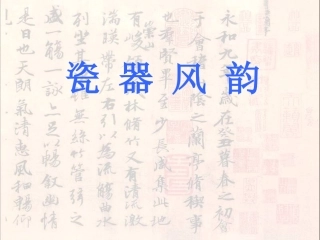 瓷器风韵
永和九歲在癸丑暮春之初
于會陰之蘭亭脩稧事
也賢畢至少長咸集此地
崇山
有峻林脩竹又有清流激
湍暎帶左右引以為流觴曲水
列坐其無絲竹管弦之
盛一觴一詠亦足以暢敘幽情
是日也天朗氣清惠風和暢仰